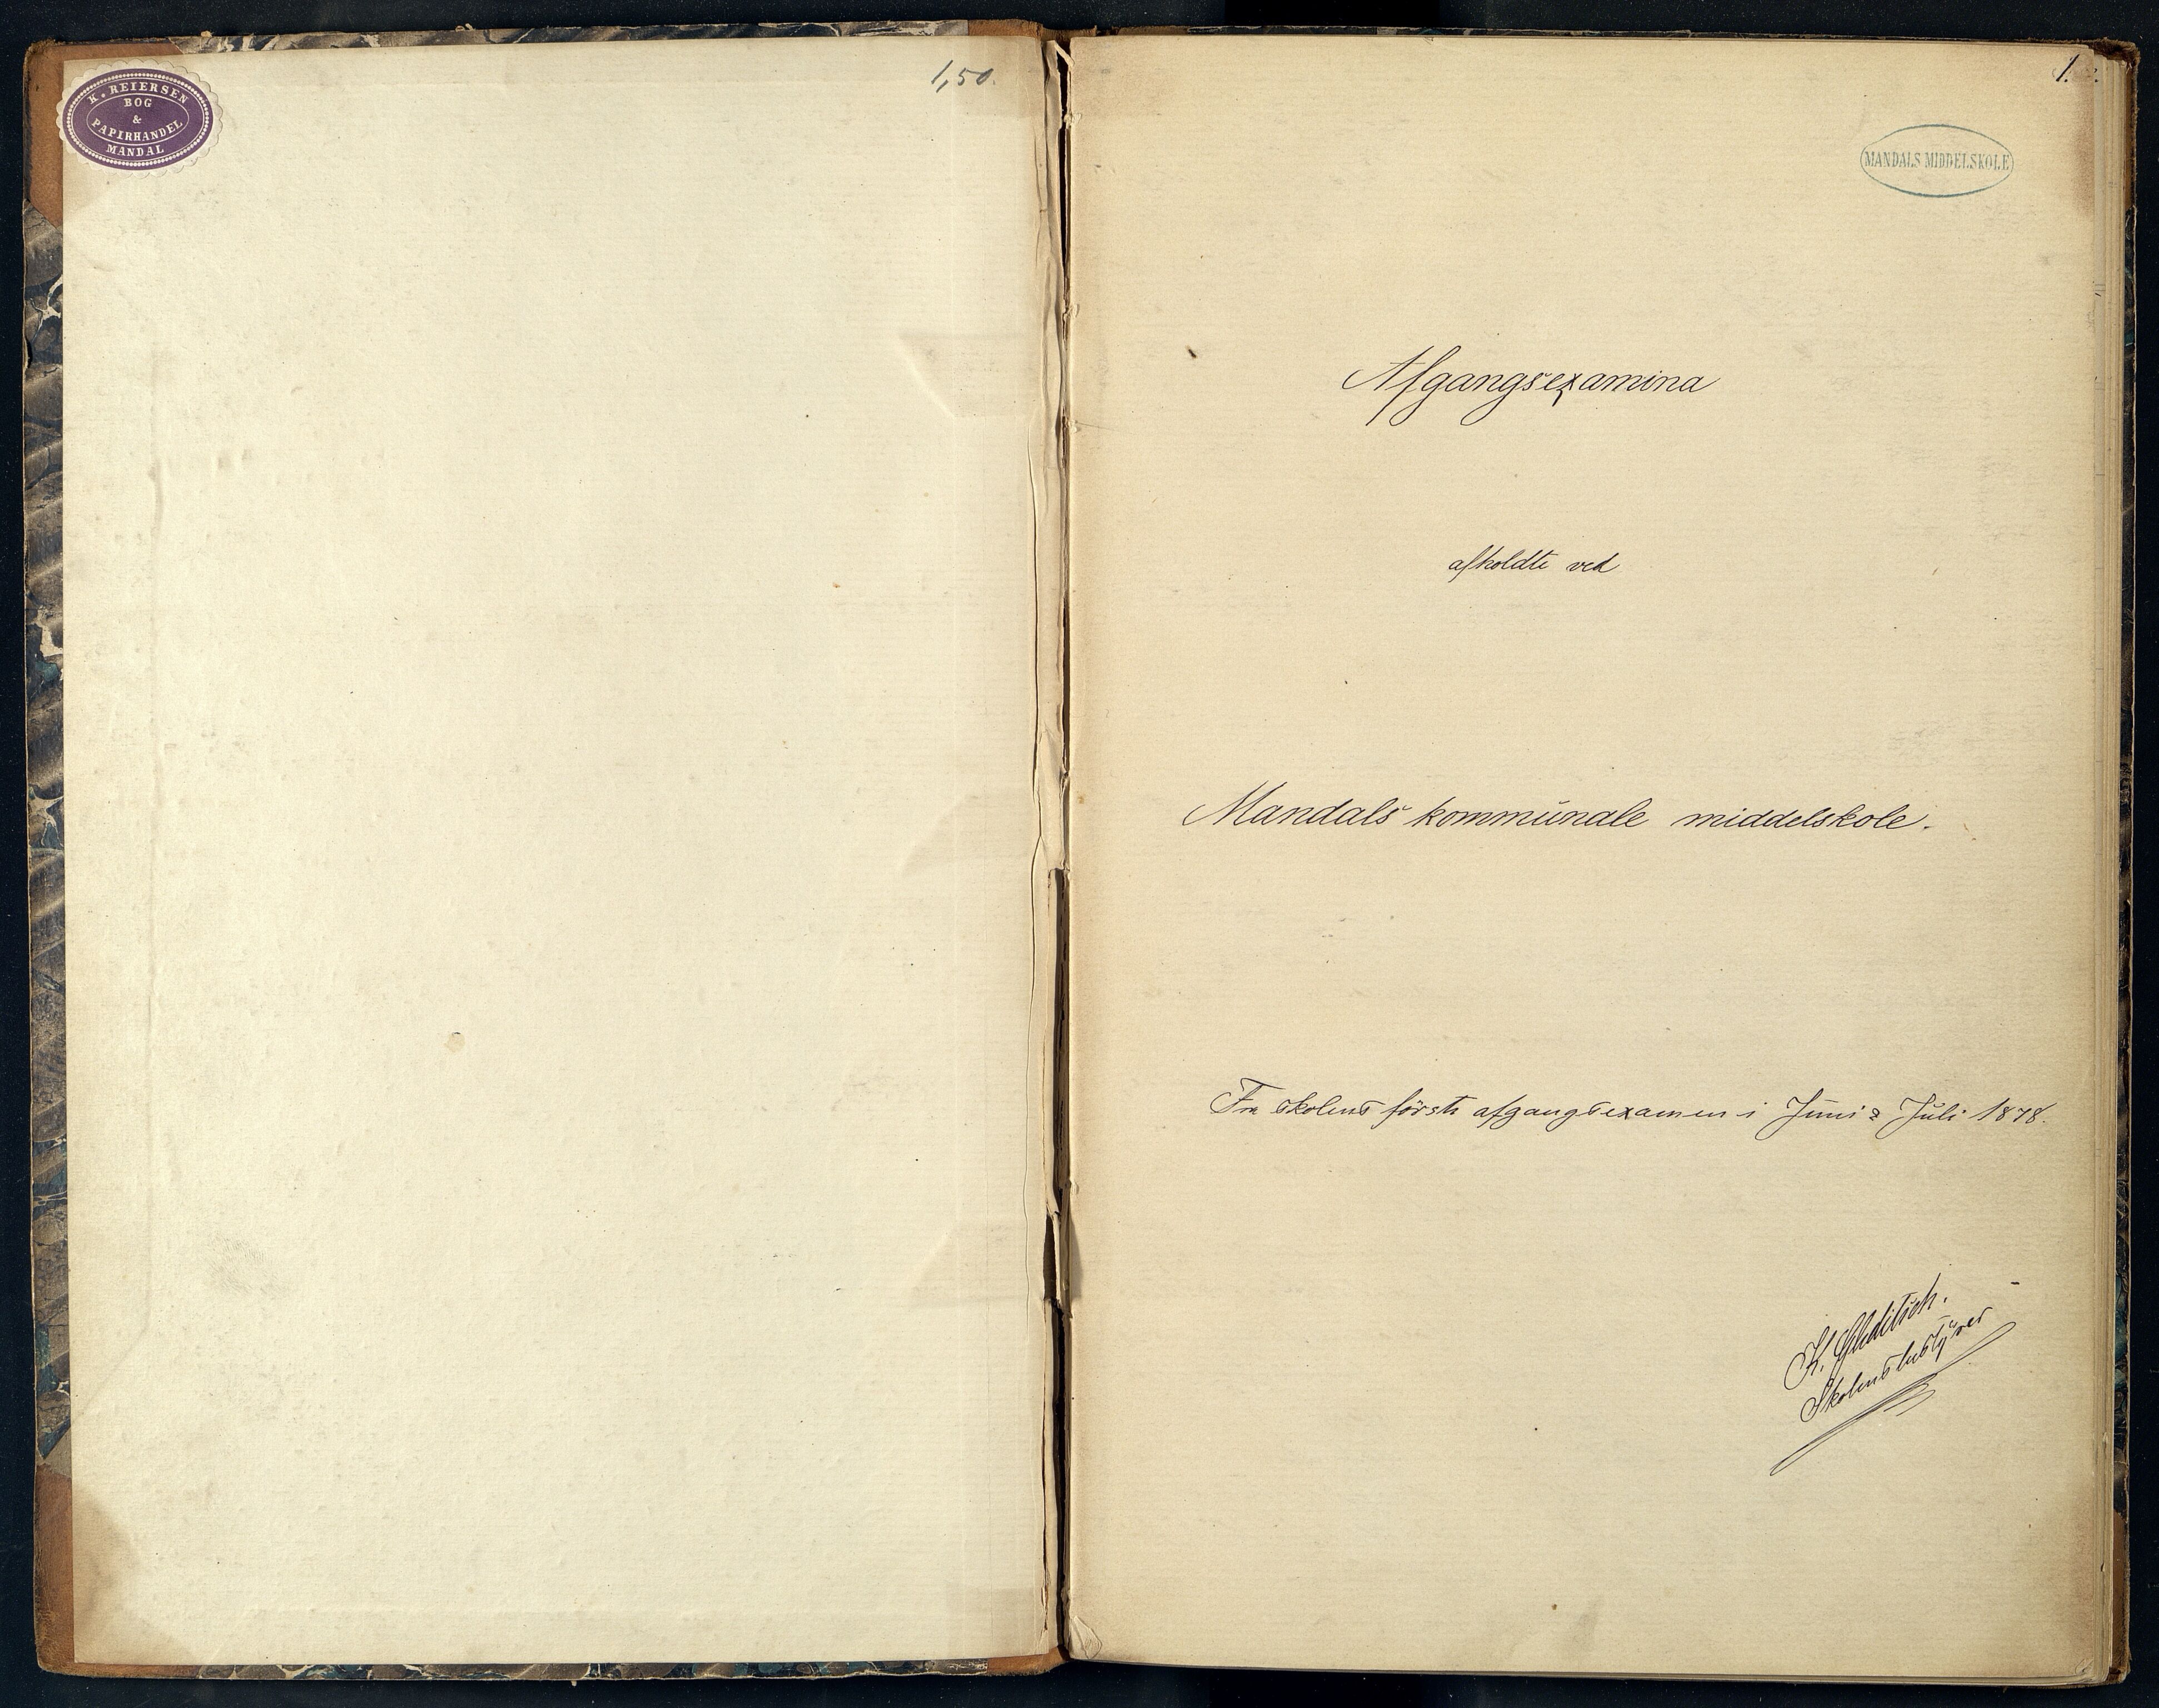 K. REIERSEN
BOG
&
PAPIRHANDEL
MANDAL
1,50.
1.
MANDALS MIDDELSKOLE
Afgangsexamina
afholdte ved
Mandals kommunale middelskole.
Fra skolens første afgangsexamen i Juni & Juli 1878.
K. Gleditsch.
Skolens bestyrer